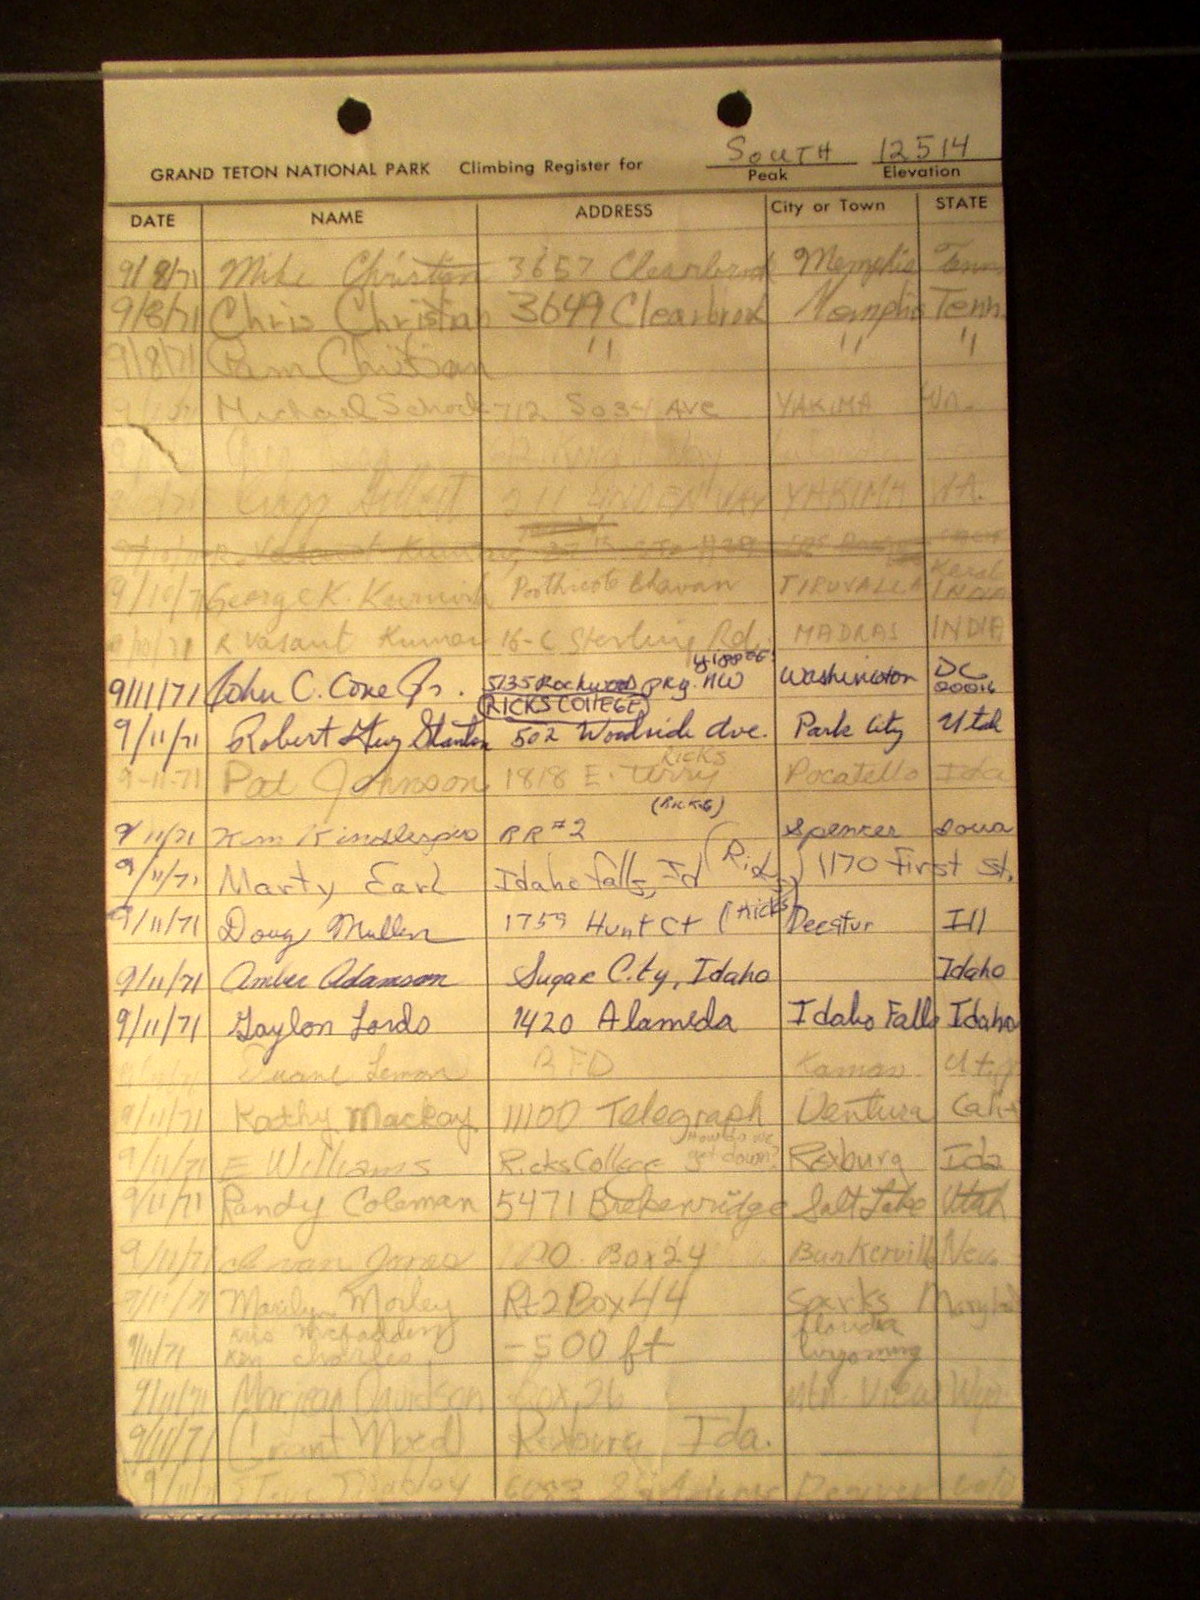 SOUTH 12514
GRAND TETON NATIONAL PARK Climbing Register for Peak Elevation
DATE NAME ADDRESS City or Town STATE
9/8/71 Mike Christian 3657 Clearbrook Memphis Tenn
9/8/71 Chris Christian 3649 Clearbrook Memphis Tenn.
9/8/71 Pam Christian " " "
Michael 712 So 34 Ave YAKIMA Wn.
211 LINDEN WAY YAKIMA WA.
Kerala
9/10/71 George K. Bhavan TIRUVALLA INDIA
9/10/71 R Vasant Kumar 16-C Sterling Rd. MADRAS INDIA
yippee!
9/11/71 John C. Cone Jr. 5135 Rockwood pky. NW Washington DC 20016
RICKS COLLEGE
9/11/71 Robert Guy Stanton 502 Woodside Ave. Park City Utah
RICKS
9-11-71 Pat Johnson 1818 E. Terry Pocatello Ida
(Ricks)
9/11/71 Kim RR #2 Spencer Iowa
9/11/71 Marty Earl Idaho Falls, Id (Ricks) 1170 First St.
9/11/71 Doug Mullen 1759 Hunt Ct (Ricks) Decatur Ill
9/11/71 Amber Adamson Sugar City, Idaho Idaho
9/11/71 Gaylon Lords 1420 Alameda Idaho Falls Idaho
Duane Lemon RFD Kamas Utah
9/11/71 Kathy Mackay 11100 Telegraph Ventura Calif
How do we get down?
9/11/71 E Williams Ricks College Rexburg Ida
9/11/71 Randy Coleman 5471 Brekenridge Salt Lake Utah
9/11/71 Jones P.O. Box 24 Bunkerville Nev.
9/11/71 Marilyn Morley Rt 2 Box 44 Sparks Maryland
Kris McFadden Florida
9/11/71 Ken Charles -500 ft Wyoming
9/11/71 Davidson Box 26 Mtn. View Wyo
9/11/71 Grant Wood Rexburg Ida.
9/11 Mackay Denver Colo